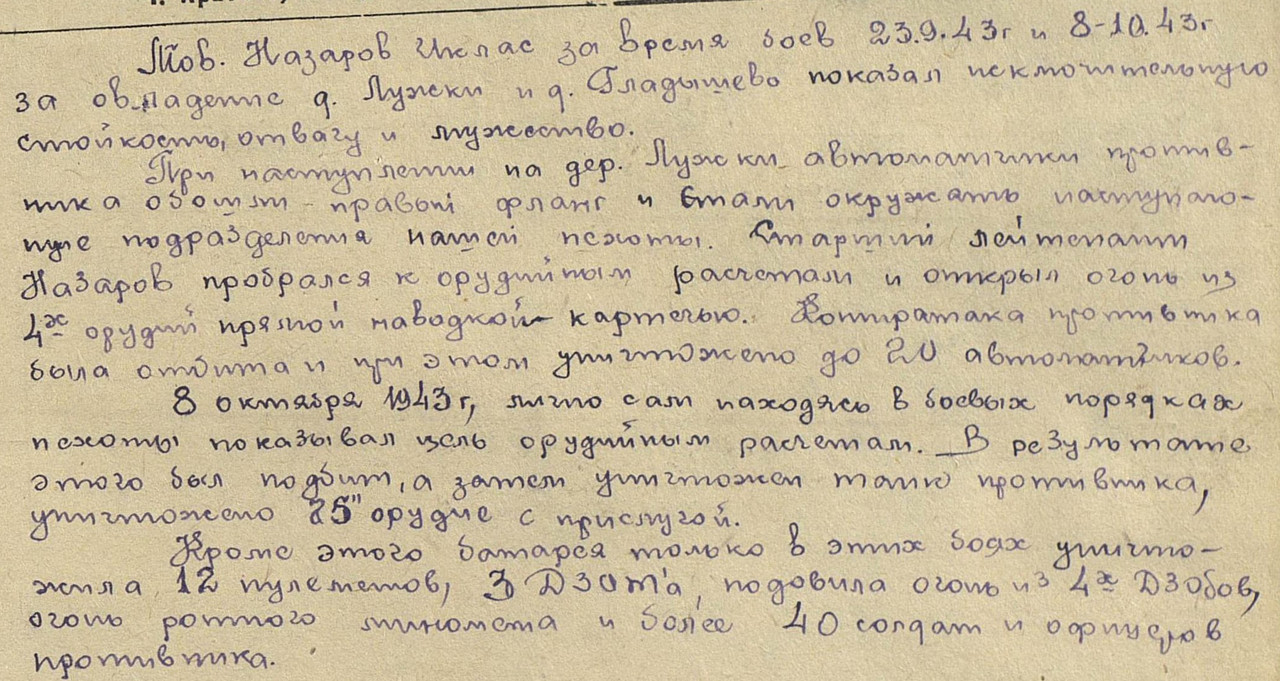 Тов. Назаров Иклас за время боев 23.9.43г и 8-10.43г
за овладение д. Лужки и д. Гладышево показал исключительную
стойкость, отвагу и мужество.
При наступлении на дер. Лужки автоматчики против-
ника обошли правый фланг и стали окружать наступаю-
щие подразделения нашей пехоты. Старший лейтенант
Назаров пробрался к орудийным расчетам и открыл огонь из
4х орудий прямой наводкой картечью. Контратака противника
была отбита и при этом уничтожено до 20 автоматчиков.
8 октября 1943г, лично сам находясь в боевых порядках
пехоты показывал цель орудийным расчетам. В результате
этого был подбит, а затем уничтожен танк противника,
уничтожено 75" орудие с прислугой.
Кроме этого батарея только в этих боях уничто-
жила 12 пулеметов, 3 ДЗОТ'а, подовила огонь из 4х ДЗОбов,
огонь ротного миномета и более 40 солдат и офицеров
противника.